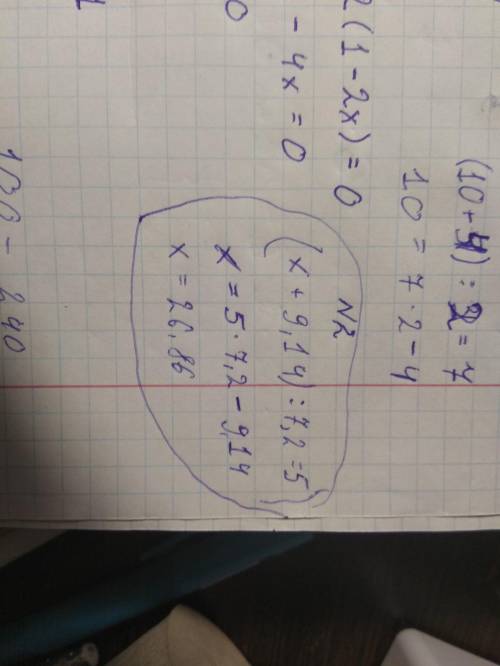 (10 + 4) : 2 = 7
10 = 7 · 2 - 4
2(1 - 2x) = 0
- 4x = 0
0
N2
(x + 9,14) : 7,2 = 5
x = 5 · 7,2 - 9,14
x = 26.86